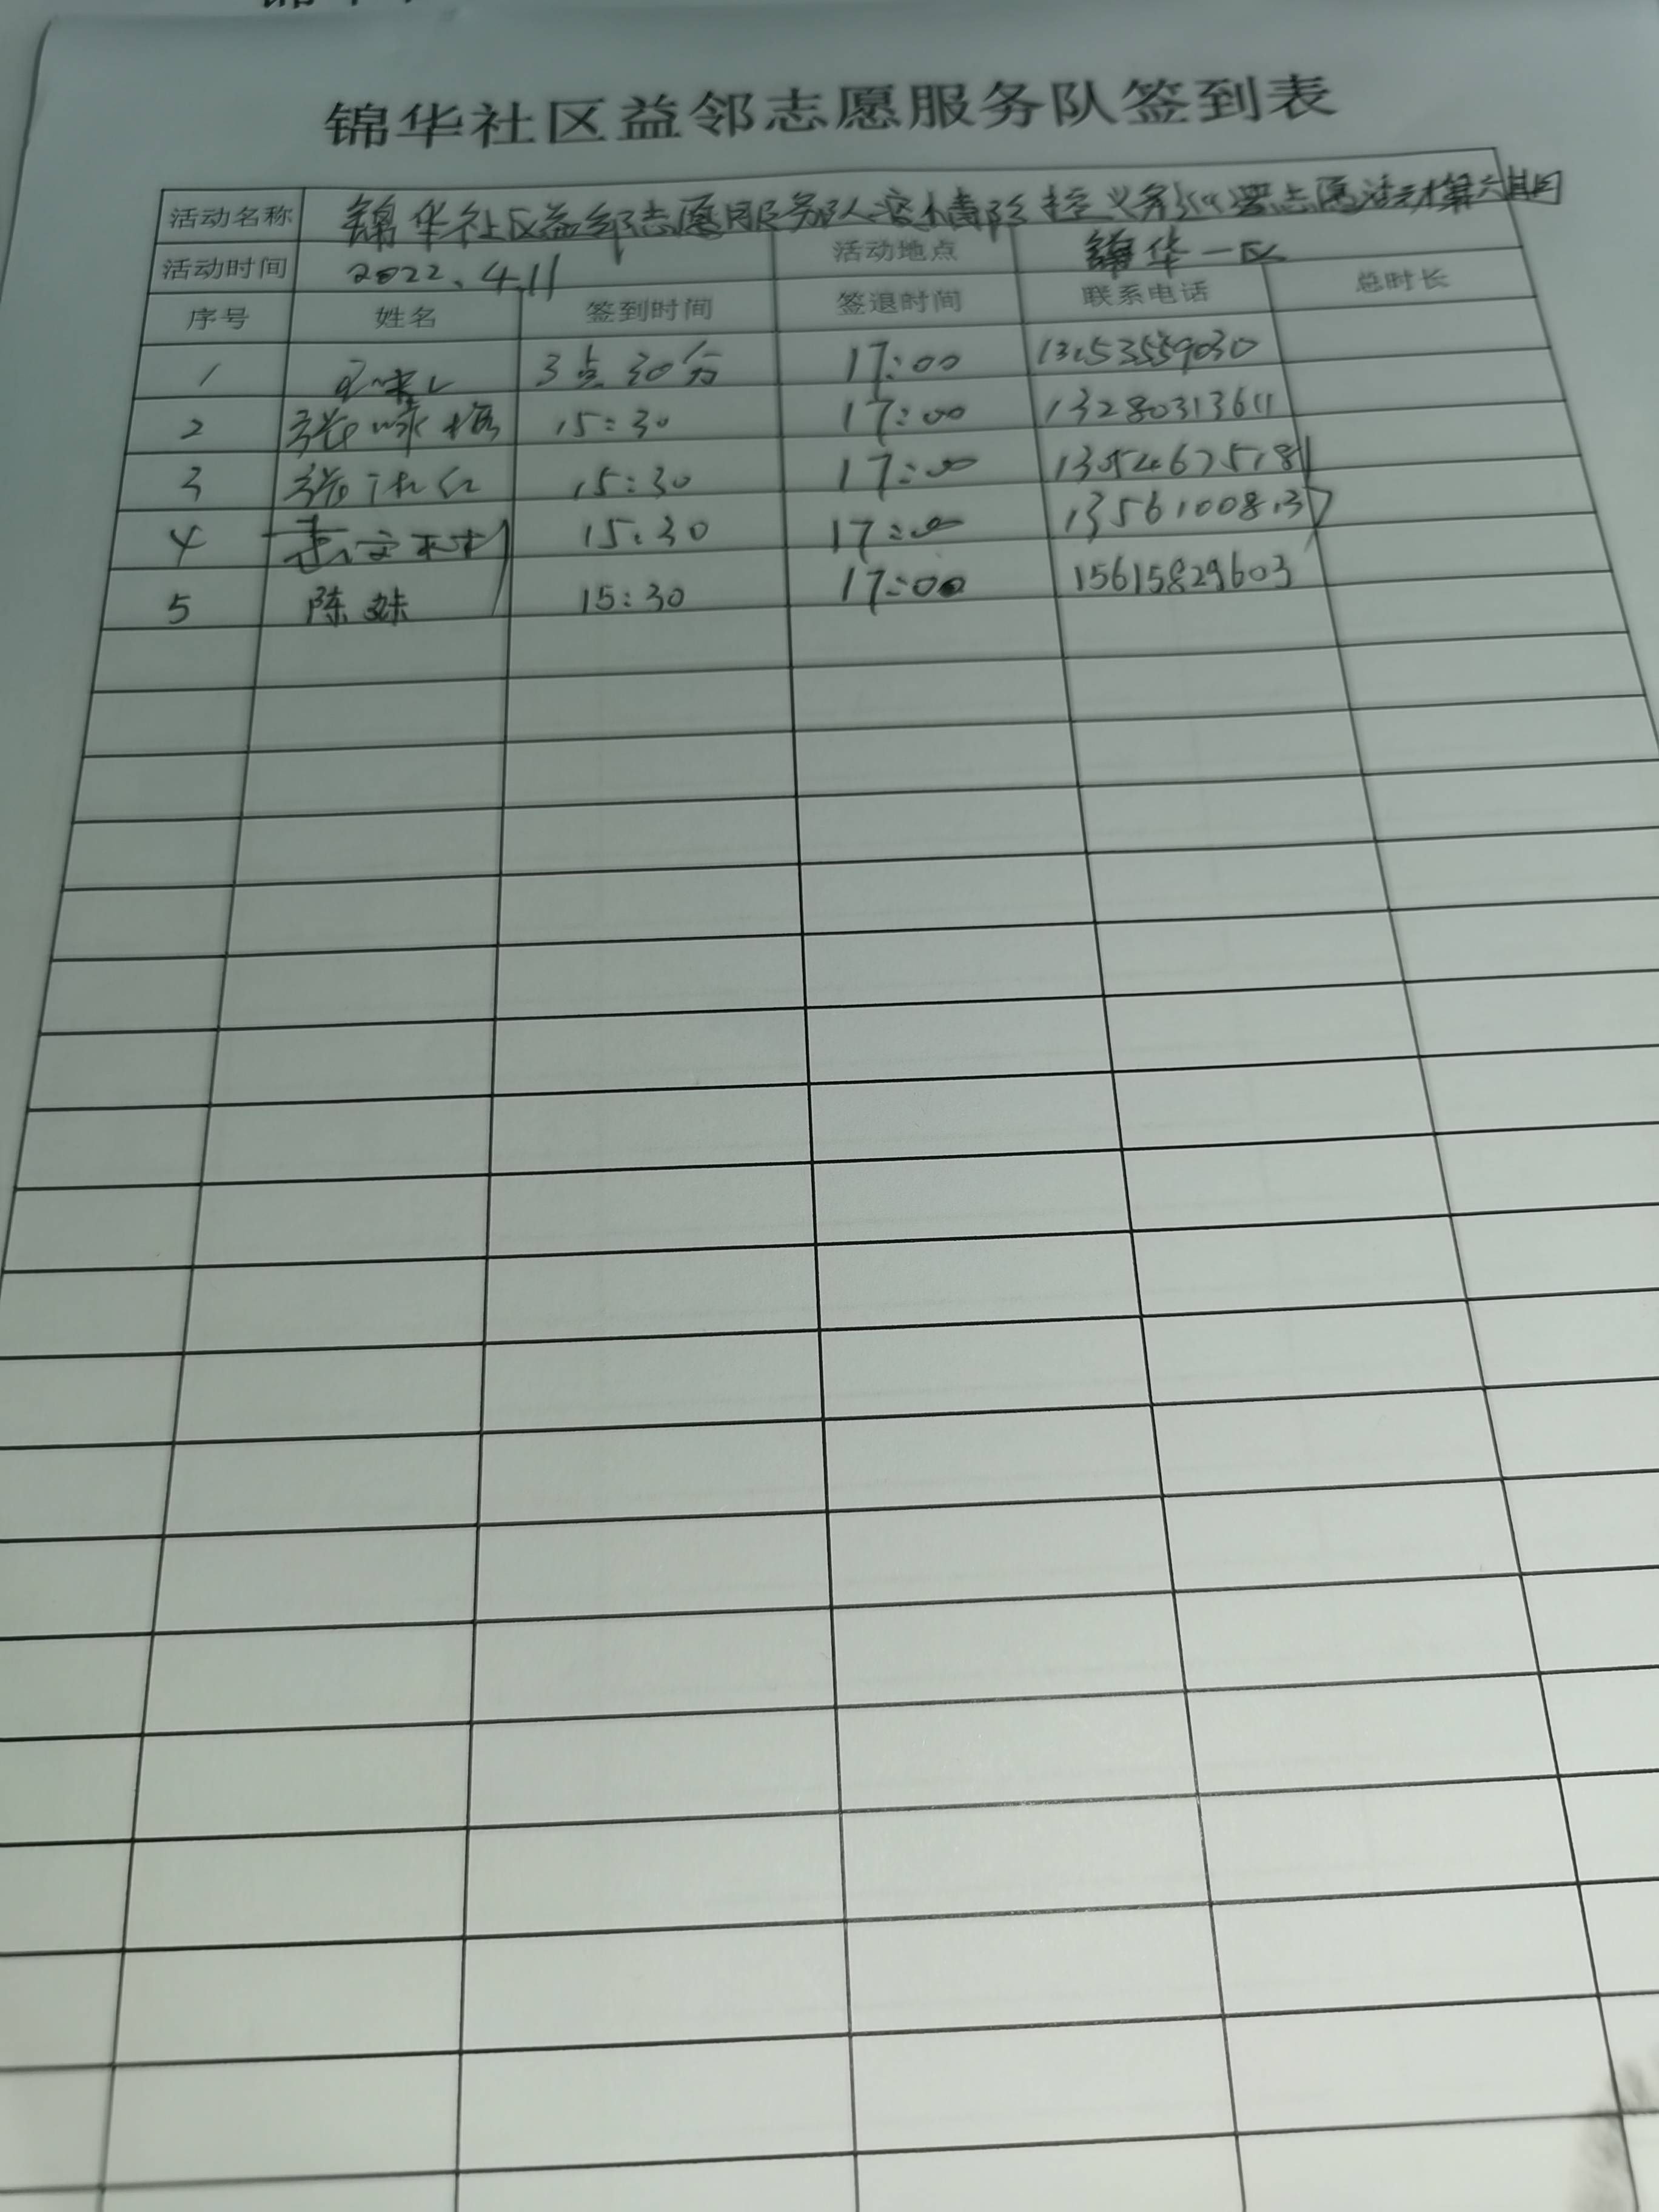 锦华社区益邻志愿服务队签到表
活动名称 锦华社区益邻志愿服务队疫情防控义务巡逻志愿活动第六期
活动时间 2022.4.11 活动地点 锦华一区
序号 姓名 签到时间 签退时间 联系电话 总时长
1 3点30分 17:00 13153559030
2 张咏梅 15:30 17:00 13280313611
3 张 红 15:30 17:00
4 15:30 17:00 13561008137
5 陈姝 15:30 17:00 15615829603